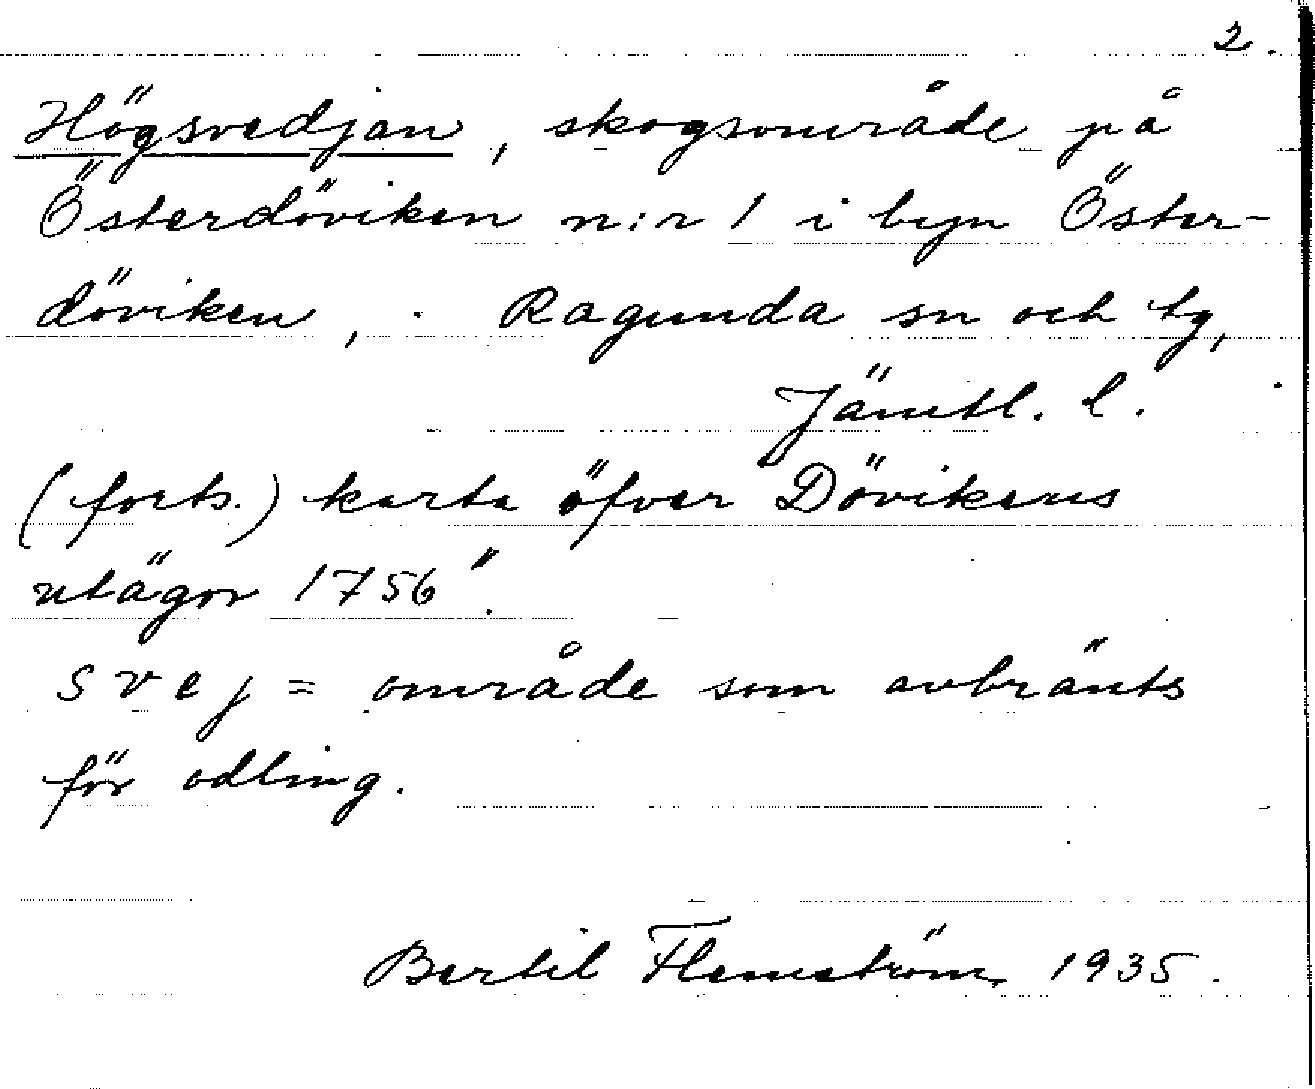 2.
Högsvedjan, skogsområde på
Österdöviken n:r 1 i byn Öster-
döviken, Ragunda sn och tg,
Jämtl. l.
(forts.) karta öfver Dövikens
utägor 1756".
svej = område som avbränts
för odling.
Bertil Flemström 1935.